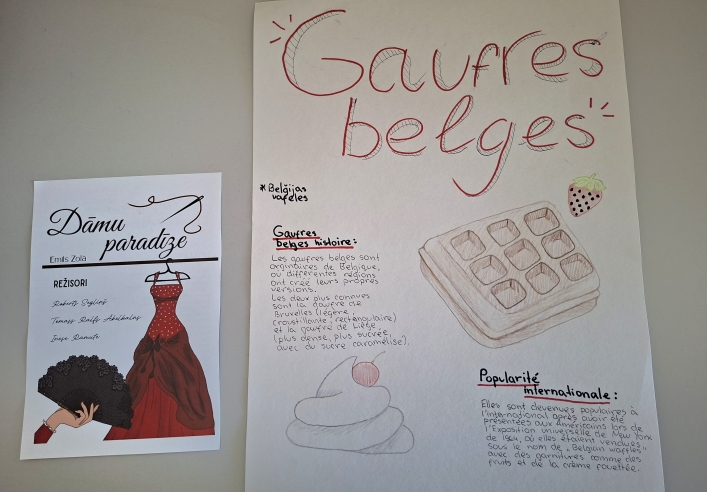 Dāmu
paradīze
Emīls Zolā
REŽISORI
Gaufres
belges
* Beļģijas
vafeles
Gaufres
belges histoire:
Les gaufres belges sont
originaires de Belgique,
où différentes régions
ont créé leurs propres
versions.
Les deux plus connues
sont la gaufre de
Bruxelles (légère,
croustillante, rectangulaire)
et la gaufre de Liège
(plus dense, plus sucrée,
avec du sucre caramélisé).
Popularité
internationale:
Elles sont devenues populaires à
l'international après avoir été
présentées aux Américains lors de
l'Exposition universelle de New York
de 1964, où elles étaient vendues
sous le nom de „Belgian waffles"
avec des garnitures comme des
fruits et de la crème fouettée.